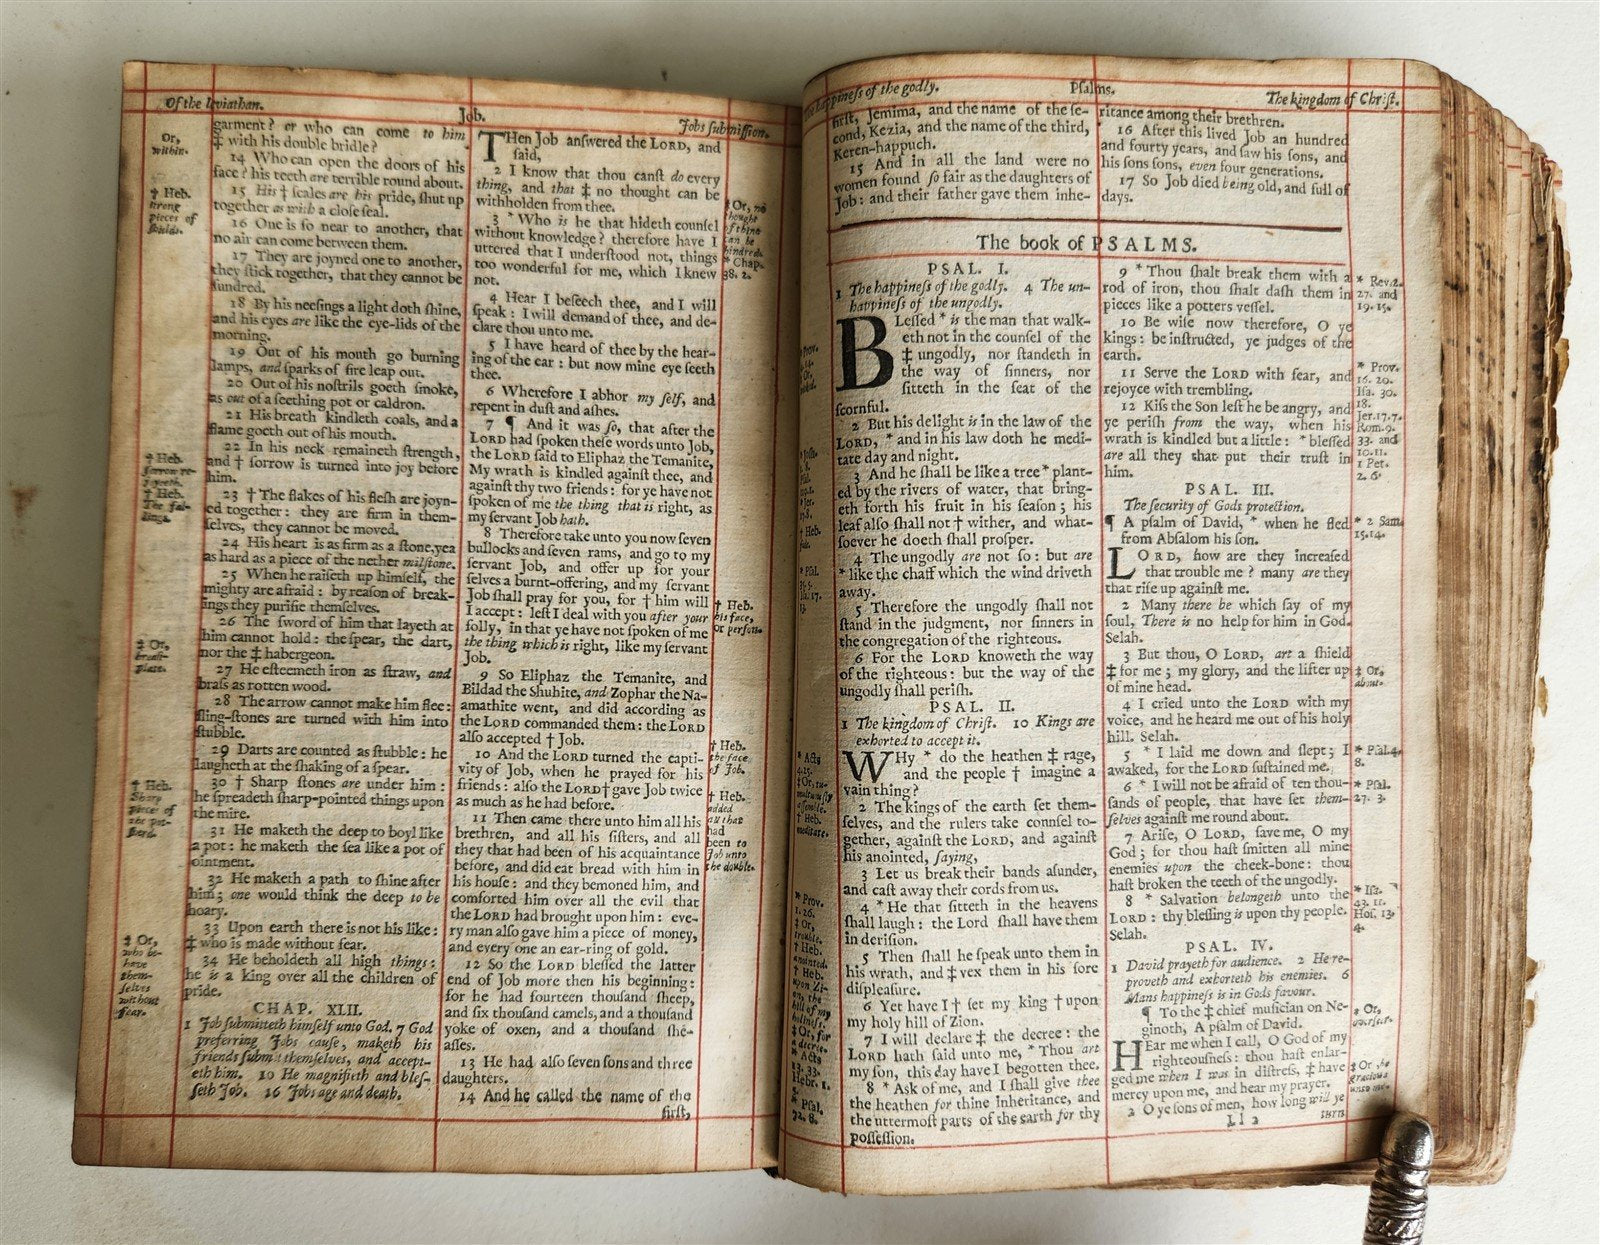 Of the leviathan.
Job.
Jobs ſubmiſſion.
Or,
within.
† Heb.
ſtrong
pieces of
ſhields.
garment? or who can come to him
‡ with his double bridle?
14 Who can open the doors of his
face? his teeth are terrible round about.
15 His † ſcales are his pride, ſhut up
together as with a cloſe ſeal.
16 One is ſo near to another, that
no air can come between them.
17 They are joyned one to another,
they ſtick together, that they cannot be
ſundred.
18 By his neeſings a light doth ſhine,
and his eyes are like the eye-lids of the
morning.
19 Out of his mouth go burning
lamps, and ſparks of fire leap out.
20 Out of his noſtrils goeth ſmoke,
as out of a ſeething pot or caldron.
21 His breath kindleth coals, and a
flame goeth out of his mouth.
22 In his neck remaineth ſtrength,
and † ſorrow is turned into joy before
him.
23 † The flakes of his fleſh are joyn-
ed together: they are firm in them-
ſelves, they cannot be moved.
24 His heart is as firm as a ſtone, yea
as hard as a piece of the nether milſtone.
25 When he raiſeth up himſelf, the
mighty are afraid: by reaſon of break-
ings they purifie themſelves.
26 The ſword of him that layeth at
him cannot hold: the ſpear, the dart,
nor the ‡ habergeon.
27 He eſteemeth iron as ſtraw, and
braſs as rotten wood.
28 The arrow cannot make him flee:
ſling-ſtones are turned with him into
ſtubble.
29 Darts are counted as ſtubble: he
laugheth at the ſhaking of a ſpear.
30 † Sharp ſtones are under him:
he ſpreadeth ſharp-pointed things upon
the mire.
31 He maketh the deep to boyl like
a pot: he maketh the ſea like a pot of
ointment.
32 He maketh a path to ſhine after
him; one would think the deep to be
hoary.
33 Upon earth there is not his like:
‡ who is made without fear.
34 He beholdeth all high things:
he is a king over all the children of
pride.
CHAP. XLII.
1 Job ſubmitteth himſelf unto God. 7 God
preferring Jobs cauſe, maketh his
friends ſubmit themſelves, and accept-
eth him. 10 He magnifieth and bleſ-
ſeth Job. 16 Jobs age and death.
† Heb.
ſorrow re-
joyceth.
† Heb.
The fal-
lings.
‡ Or,
breaſt-
plate.
† Heb.
Sharp
pieces of
the pot-
ſherd.
‡ Or,
who be-
have
them-
ſelves
without
fear.
THen Job anſwered the LORD, and
ſaid,
2 I know that thou canſt do every
thing, and that ‡ no thought can be
withholden from thee.
3 * Who is he that hideth counſel
without knowledge? therefore have I
uttered that I underſtood not, things
too wonderful for me, which I knew
not.
4 Hear I beſeech thee, and I will
ſpeak: I will demand of thee, and de-
clare thou unto me.
5 I have heard of thee by the hear-
ing of the ear: but now mine eye ſeeth
thee.
6 Wherefore I abhor my ſelf, and
repent in duſt and aſhes.
7 ¶ And it was ſo, that after the
LORD had ſpoken theſe words unto Job,
the LORD ſaid to Eliphaz the Temanite,
My wrath is kindled againſt thee, and
againſt thy two friends: for ye have not
ſpoken of me the thing that is right, as
my ſervant Job hath.
8 Therefore take unto you now ſeven
bullocks and ſeven rams, and go to my
ſervant Job, and offer up for your
ſelves a burnt-offering, and my ſervant
Job ſhall pray for you, for † him will
I accept: leſt I deal with you after your
folly, in that ye have not ſpoken of me
the thing which is right, like my ſervant
Job.
9 So Eliphaz the Temanite, and
Bildad the Shuhite, and Zophar the Na-
amathite went, and did according as
the LORD commanded them: the LORD
alſo accepted † Job.
10 And the LORD turned the capti-
vity of Job, when he prayed for his
friends: alſo the LORD † gave Job twice
as much as he had before.
11 Then came there unto him all his
brethren, and all his ſiſters, and all
they that had been of his acquaintance
before, and did eat bread with him in
his houſe: and they bemoned him, and
comforted him over all the evil that
the LORD had brought upon him: eve-
ry man alſo gave him a piece of money,
and every one an ear-ring of gold.
12 So the LORD bleſſed the latter
end of Job more then his beginning:
for he had fourteen thouſand ſheep,
and ſix thouſand camels, and a thouſand
yoke of oxen, and a thouſand ſhe-
aſſes.
13 He had alſo ſeven ſons and three
daughters.
14 And he called the name of the
firſt,
‡ Or, no
thought
of thine
can be
hindred.
* Chap.
38. 2.
† Heb.
his face,
or perſon.
† Heb.
the face
of Job.
† Heb.
added
all that
had
been to
Job unto
the double.
happineſs of the godly.
Pſalms.
The kingdom of Chriſt.
firſt, Jemima, and the name of the ſe-
cond, Kezia, and the name of the third,
Keren-happuch.
15 And in all the land were no
women found ſo fair as the daughters of
Job: and their father gave them inhe-
ritance among their brethren.
16 After this lived Job an hundred
and fourty years, and ſaw his ſons, and
his ſons ſons, even four generations.
17 So Job died being old, and full of
days.
The book of PSALMS.
PSAL. I.
1 The happineſs of the godly. 4 The un-
happineſs of the ungodly.
BLeſſed * is the man that walk-
eth not in the counſel of the
‡ ungodly, nor ſtandeth in
the way of ſinners, nor
ſitteth in the ſeat of the
ſcornful.
2 But his delight is in the law of the
LORD, * and in his law doth he medi-
tate day and night.
3 And he ſhall be like a tree * plant-
ed by the rivers of water, that bring-
eth forth his fruit in his ſeaſon; his
leaf alſo ſhall not † wither, and what-
ſoever he doeth ſhall proſper.
4 The ungodly are not ſo: but are
* like the chaff which the wind driveth
away.
5 Therefore the ungodly ſhall not
ſtand in the judgment, nor ſinners in
the congregation of the righteous.
6 For the LORD knoweth the way
of the righteous: but the way of the
ungodly ſhall periſh.
PSAL. II.
1 The kingdom of Chriſt. 10 Kings are
exhorted to accept it.
WHy * do the heathen ‡ rage,
and the people † imagine a
vain thing?
2 The kings of the earth ſet them-
ſelves, and the rulers take counſel to-
gether, againſt the LORD, and againſt
his anointed, ſaying,
3 Let us break their bands aſunder,
and caſt away their cords from us.
4 * He that ſitteth in the heavens
ſhall laugh: the Lord ſhall have them
in deriſion.
5 Then ſhall he ſpeak unto them in
his wrath, and ‡ vex them in his ſore
diſpleaſure.
6 Yet have I † ſet my king † upon
my holy hill of Zion.
7 I will declare ‡ the decree: the
LORD hath ſaid unto me, * Thou art
my ſon, this day have I begotten thee.
8 * Ask of me, and I ſhall give thee
the heathen for thine inheritance, and
the uttermoſt parts of the earth for thy
poſſeſſion.
* Prov.
† Heb.
* Pſal.
* Acts
4.25.
† Heb.
meditate.
* Prov.
1. 26.
‡ Or,
trouble.
† Heb.
anointed.
† Heb.
upon Zi-
on, the
hill of my
holineſs.
‡ Or, for
a decree.
* Acts
13. 33.
Hebr. 1.
5.
* Pſal.
72. 8.
9 * Thou ſhalt break them with a
rod of iron, thou ſhalt daſh them in
pieces like a potters veſſel.
10 Be wiſe now therefore, O ye
kings: be inſtructed, ye judges of the
earth.
11 Serve the LORD with fear, and
rejoyce with trembling.
12 Kiſs the Son leſt he be angry, and
ye periſh from the way, when his
wrath is kindled but a little: * bleſſed
are all they that put their truſt in
him.
PSAL. III.
The ſecurity of Gods protection.
¶ A pſalm of David, * when he fled
from Abſalom his ſon.
LORD, how are they increaſed
that trouble me? many are they
that riſe up againſt me.
2 Many there be which ſay of my
ſoul, There is no help for him in God.
Selah.
3 But thou, O LORD, art a ſhield
‡ for me; my glory, and the lifter up
of mine head.
4 I cried unto the LORD with my
voice, and he heard me out of his holy
hill. Selah.
5 * I laid me down and ſlept; I
awaked, for the LORD ſuſtained me.
6 * I will not be afraid of ten thou-
ſands of people, that have ſet them-
ſelves againſt me round about.
7 Ariſe, O LORD, ſave me, O my
God; for thou haſt ſmitten all mine
enemies upon the cheek-bone: thou
haſt broken the teeth of the ungodly.
8 * Salvation belongeth unto the
LORD: thy bleſſing is upon thy people.
Selah.
PSAL. IV.
1 David prayeth for audience. 2 He re-
proveth and exhorteth his enemies. 6
Mans happineſs is in Gods favour.
¶ To the ‡ chief muſician on Ne-
ginoth, A pſalm of David.
HEar me when I call, O God of my
righteouſneſs: thou haſt enlar-
ged me when I was in diſtreſs, ‡ have
mercy upon me, and hear my prayer.
2 O ye ſons of men, how long will ye
Ll 2
turn
* Rev. 2.
27. and
19. 15.
* Prov.
16. 20.
Iſa. 30.
18.
Jer. 17. 7.
Rom. 9.
33. and
10. 11.
1 Pet.
2. 6.
* 2 Sam.
15. 14.
‡ Or,
about.
* Pſal. 4.
8.
* Pſal.
27. 3.
* Iſa.
43. 11.
Hoſ. 13.
4.
‡ Or,
overſeer.
‡ Or, be
gracious
unto me.